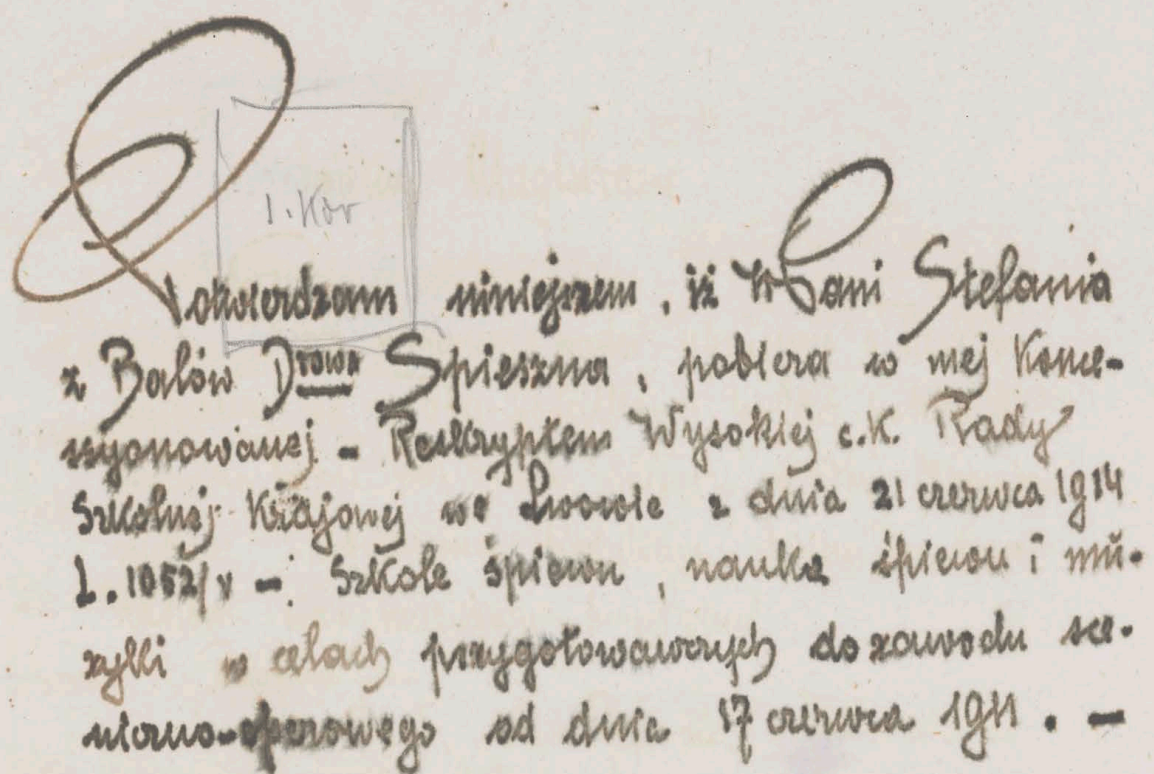 1. Kor
Potwierdzam niniejszem, iż WPani Stefania
z Balów Drowa Spieszna, pobiera w mej Konce-
ssyonowanej - Reskryptem Wysokiej c.K. Rady
Szkolnej Krajowej we Lwowie z dnia 21 czerwca 1914
L. 1052/V - Szkole śpiewu, nauka śpiewu i mu-
zyki w celach przygotowawczych do zawodu sce-
niczno-operowego od dnia 17 czerwca 1911. -